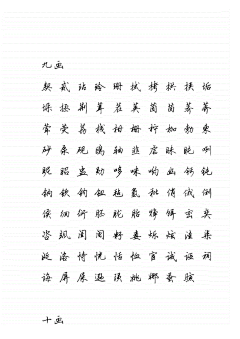 九画
契 贰 玷 玲 珊 拭 拷 拱 挟 垢
垛 拯 荆 茸 茬 荚 茵 茴 荞 荠
荤 荧 荔 栈 柑 栅 柠 枷 勃 柬
砂 泵 砚 鸥 轴 韭 虐 昧 盹 咧
昵 昭 盅 勋 哆 咪 哟 幽 钙 钝
钠 钦 钧 钮 毡 氢 秕 俏 俄 俐
侯 徊 衍 胚 胧 胎 狰 饵 峦 奕
咨 飒 闺 闽 籽 娄 烁 炫 洼 柒
涎 洛 恃 恍 恬 恤 宦 诫 诬 祠
诲 屏 屎 逊 陨 姚 娜 蚤 骇
十画